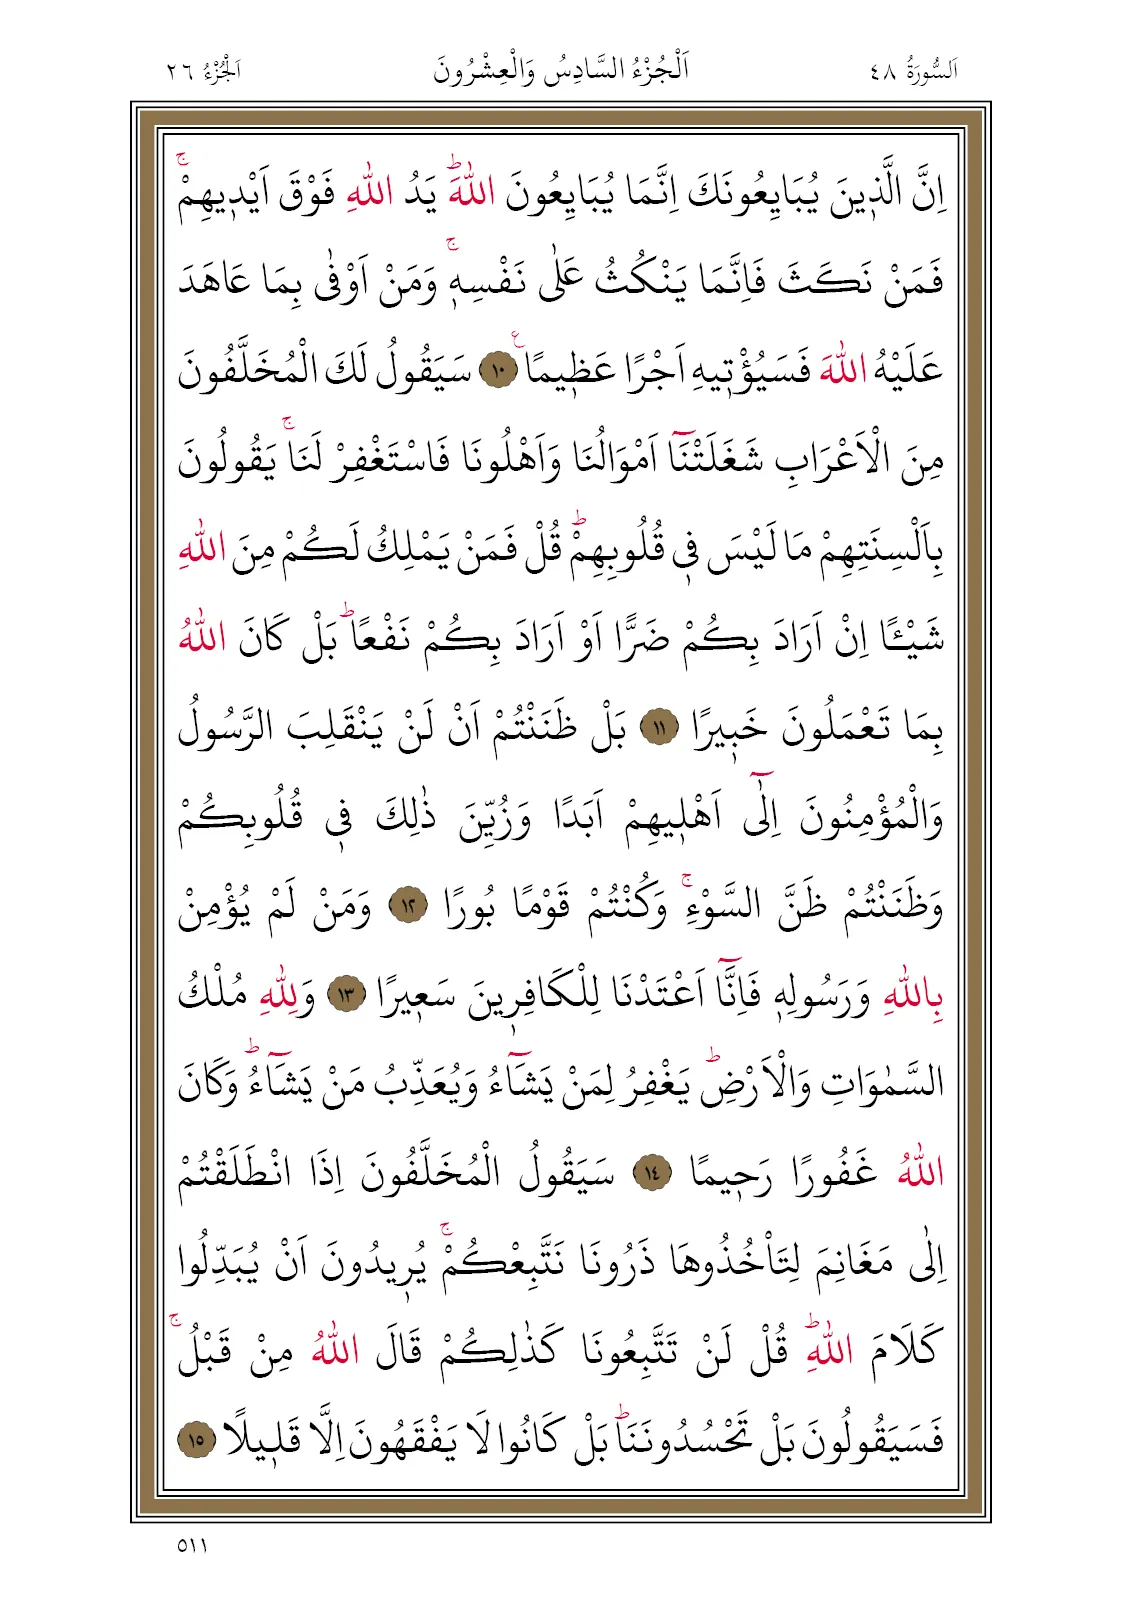 اَلسُّورَةُ ٤٨ اَلْجُزْءُ السَّادِسُ وَالْعِشْرُونَ اَلْجُزْءُ ٢٦
اِنَّ الَّذ۪ينَ يُبَايِعُونَكَ اِنَّمَا يُبَايِعُونَ اللّٰهَۜ يَدُ اللّٰهِ فَوْقَ اَيْد۪يهِمْۚ
فَمَنْ نَكَثَ فَاِنَّمَا يَنْكُثُ عَلٰى نَفْسِه۪ۚ وَمَنْ اَوْفٰى بِمَا عَاهَدَ
عَلَيْهُ اللّٰهَ فَسَيُؤْت۪يهِ اَجْرًا عَظ۪يمًا۟ ﴿١٠﴾ سَيَقُولُ لَكَ الْمُخَلَّفُونَ
مِنَ الْاَعْرَابِ شَغَلَتْنَٓا اَمْوَالُنَا وَاَهْلُونَا فَاسْتَغْفِرْ لَنَاۚ يَقُولُونَ
بِاَلْسِنَتِهِمْ مَا لَيْسَ ف۪ي قُلُوبِهِمْۜ قُلْ فَمَنْ يَمْلِكُ لَكُمْ مِنَ اللّٰهِ
شَيْـًٔا اِنْ اَرَادَ بِكُمْ ضَرًّا اَوْ اَرَادَ بِكُمْ نَفْعًاۜ بَلْ كَانَ اللّٰهُ
بِمَا تَعْمَلُونَ خَب۪يرًا ﴿١١﴾ بَلْ ظَنَنْتُمْ اَنْ لَنْ يَنْقَلِبَ الرَّسُولُ
وَالْمُؤْمِنُونَ اِلٰٓى اَهْل۪يهِمْ اَبَدًا وَزُيِّنَ ذٰلِكَ ف۪ي قُلُوبِكُمْ
وَظَنَنْتُمْ ظَنَّ السَّوْءِۚ وَكُنْتُمْ قَوْمًا بُورًا ﴿١٢﴾ وَمَنْ لَمْ يُؤْمِنْ
بِاللّٰهِ وَرَسُولِه۪ فَاِنَّٓا اَعْتَدْنَا لِلْكَافِر۪ينَ سَع۪يرًا ﴿١٣﴾ وَلِلّٰهِ مُلْكُ
السَّمٰوَاتِ وَالْاَرْضِۜ يَغْفِرُ لِمَنْ يَشَٓاءُ وَيُعَذِّبُ مَنْ يَشَٓاءُۜ وَكَانَ
اللّٰهُ غَفُورًا رَح۪يمًا ﴿١٤﴾ سَيَقُولُ الْمُخَلَّفُونَ اِذَا انْطَلَقْتُمْ
اِلٰى مَغَانِمَ لِتَأْخُذُوهَا ذَرُونَا نَتَّبِعْكُمْۚ يُر۪يدُونَ اَنْ يُبَدِّلُوا
كَلَامَ اللّٰهِۜ قُلْ لَنْ تَتَّبِعُونَا كَذٰلِكُمْ قَالَ اللّٰهُ مِنْ قَبْلُۚ
فَسَيَقُولُونَ بَلْ تَحْسُدُونَنَاۜ بَلْ كَانُوا لَا يَفْقَهُونَ اِلَّا قَل۪يلًا ﴿١٥﴾
٥١١